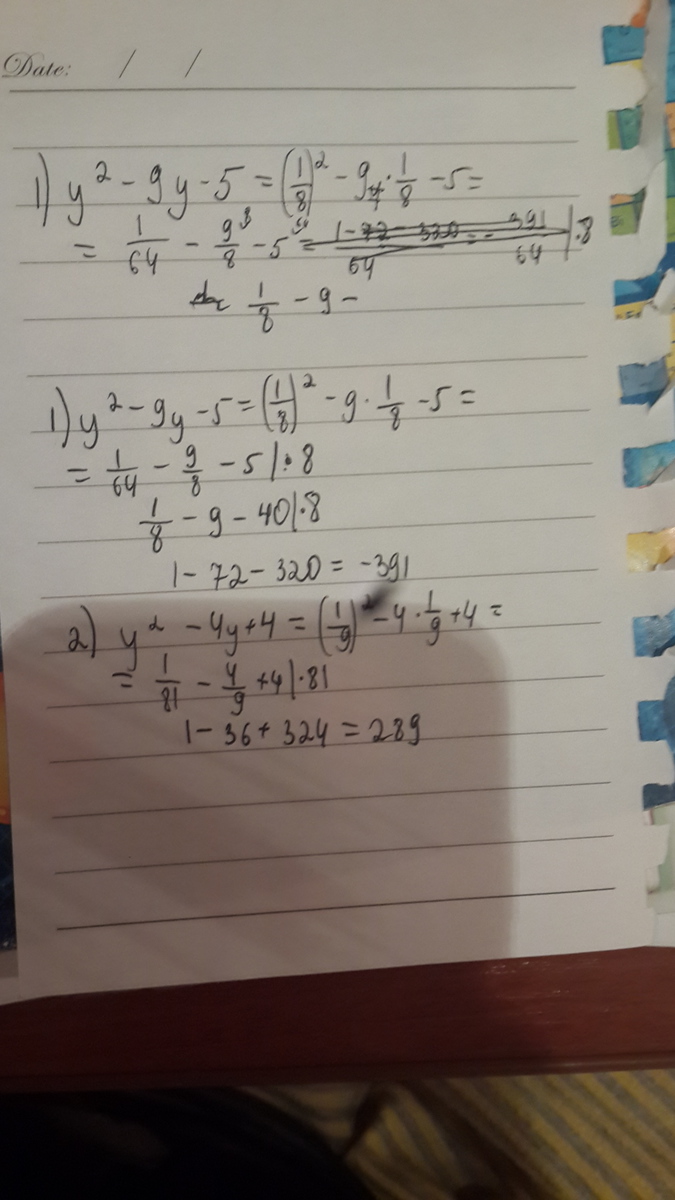 Date: / /
1) y² - 9y - 5 = (1/8)² - 9 · 1/8 - 5 =
= 1/64 - 9/8 - 5 = 1 - 72 - 320 / 64 = - 391 / 64 | · 8
1/8 - 9 -
1) y² - 9y - 5 = (1/8)² - 9 · 1/8 - 5 =
= 1/64 - 9/8 - 5 | · 8
1/8 - 9 - 40 | · 8
1 - 72 - 320 = - 391
2) y² - 4y + 4 = (1/9)² - 4 · 1/9 + 4 =
= 1/81 - 4/9 + 4 | · 81
1 - 36 + 324 = 289